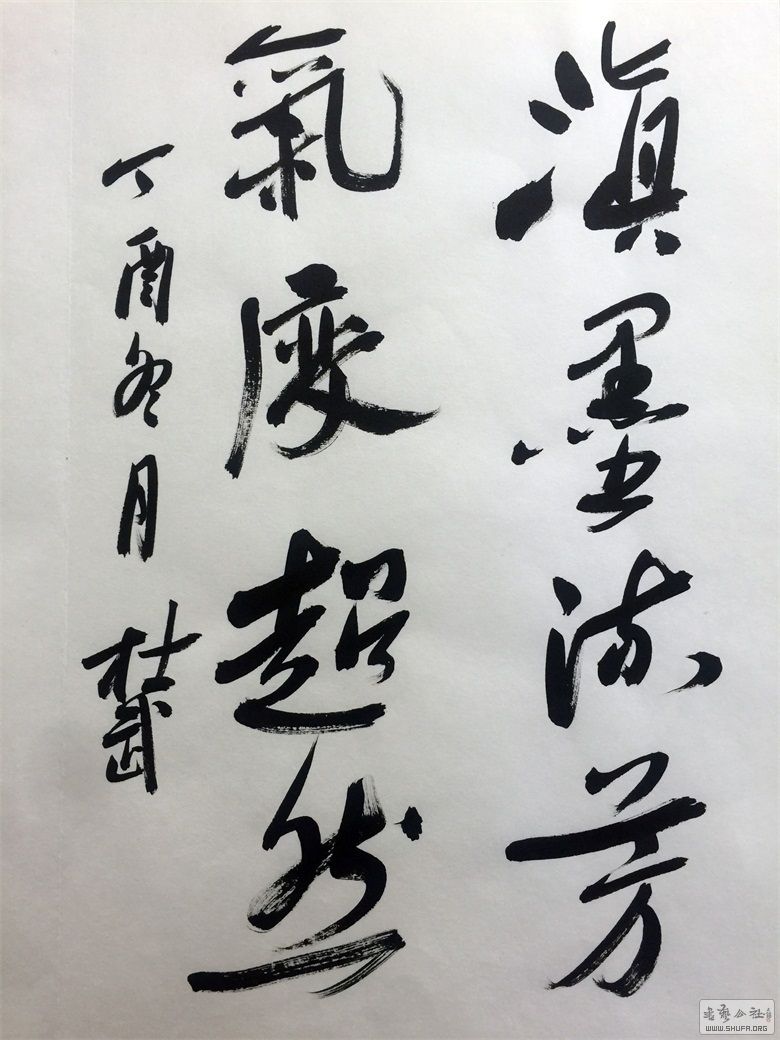 滇墨流芳
氣度超然
丁酉冬月 杜武
書藝公社
WWW.SHUFA.ORG